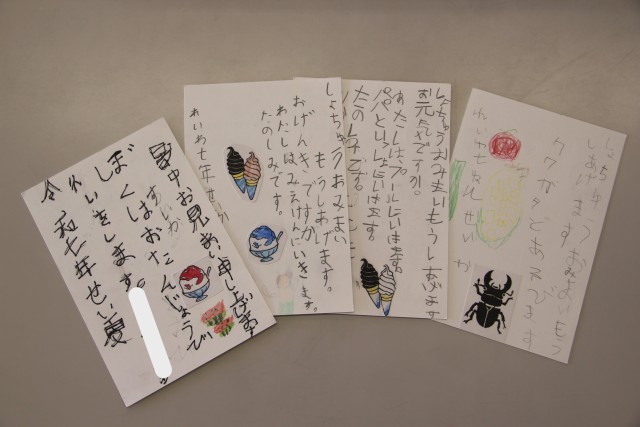 暑中お見まい申し上げます
ぼくはおたんじょうび
かいをします。
令和七年せい夏
しょちゅうおみまい
もうしあげます。
おげんきですか。
わたしはみえけんにいきます。
たのしみです。
れいわ七年せいか
しょちゅうおみまいもうしあげます
お元気ですか。
わたしはプールにいきます。
パパといっしょにいきます。
しょちゅうおみまいもう
しあげます
クワガタとあそびます
れいわ七ねんせいか